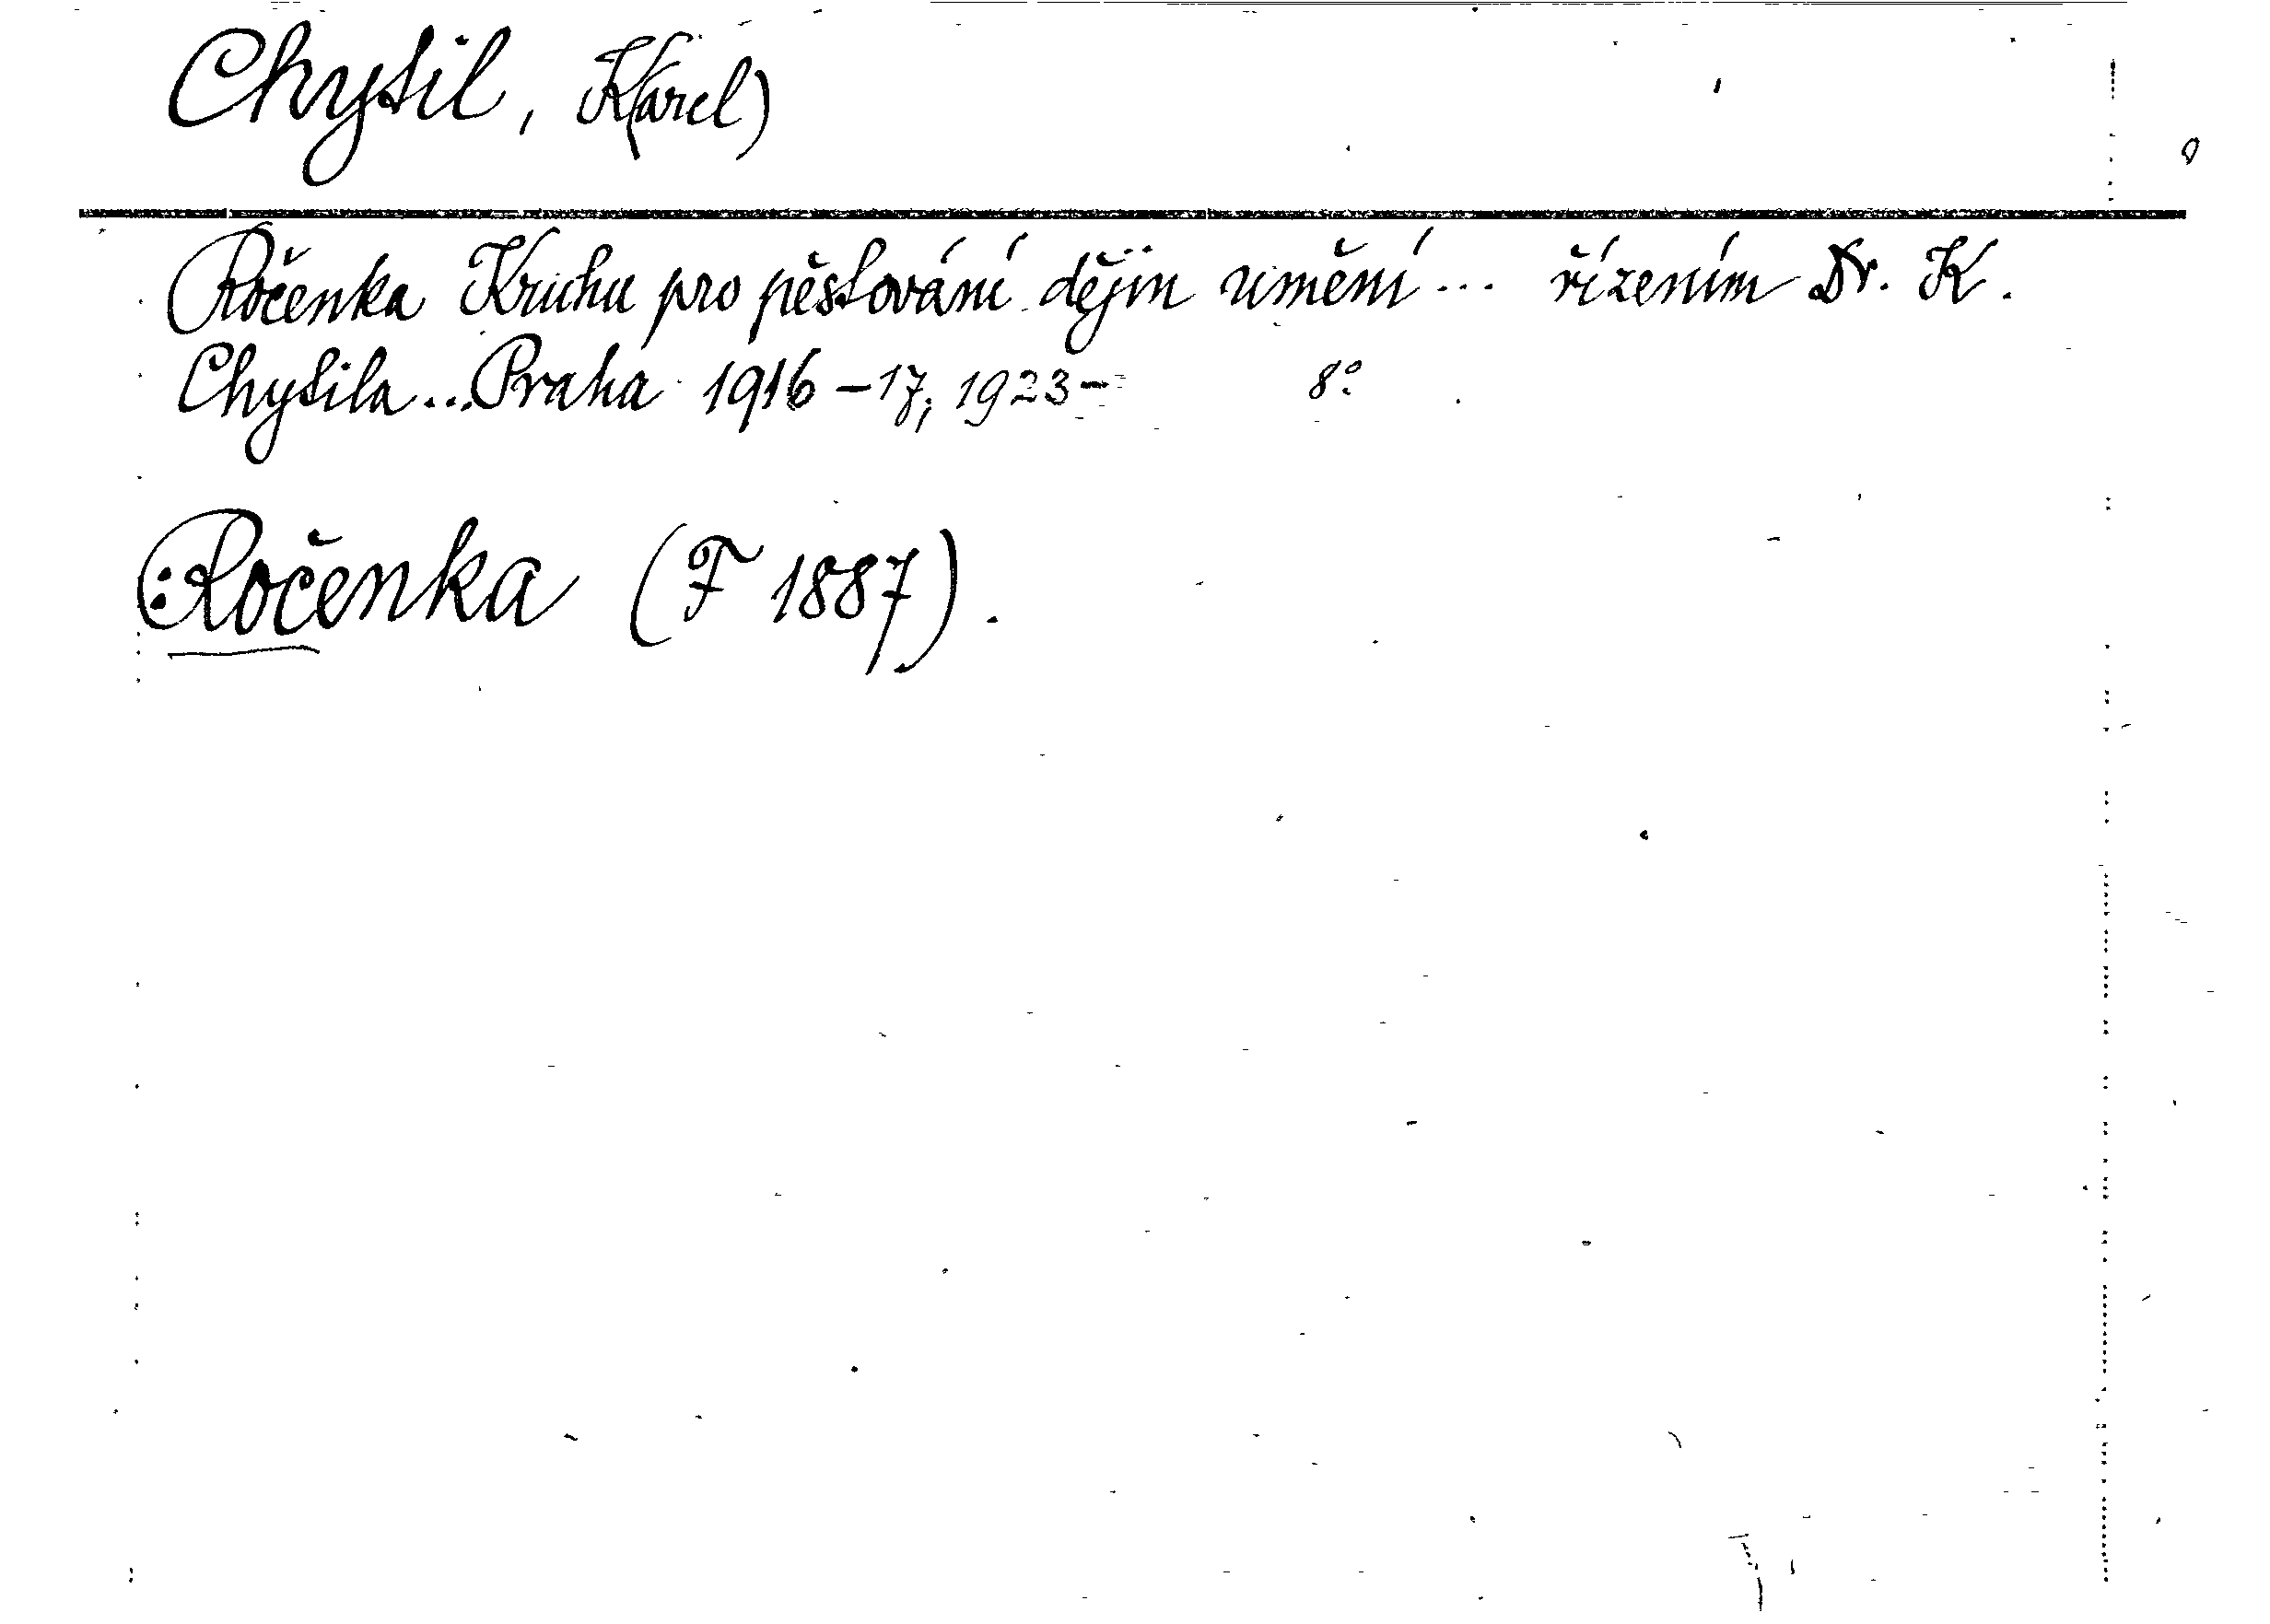 Chytil, K(arel)
Ročenka Kruhu pro pěstování dějin umění ... řízením Dr. K.
Chytila ... Praha 1916-17, 1923- 8°.
:Ročenka (F 1887).